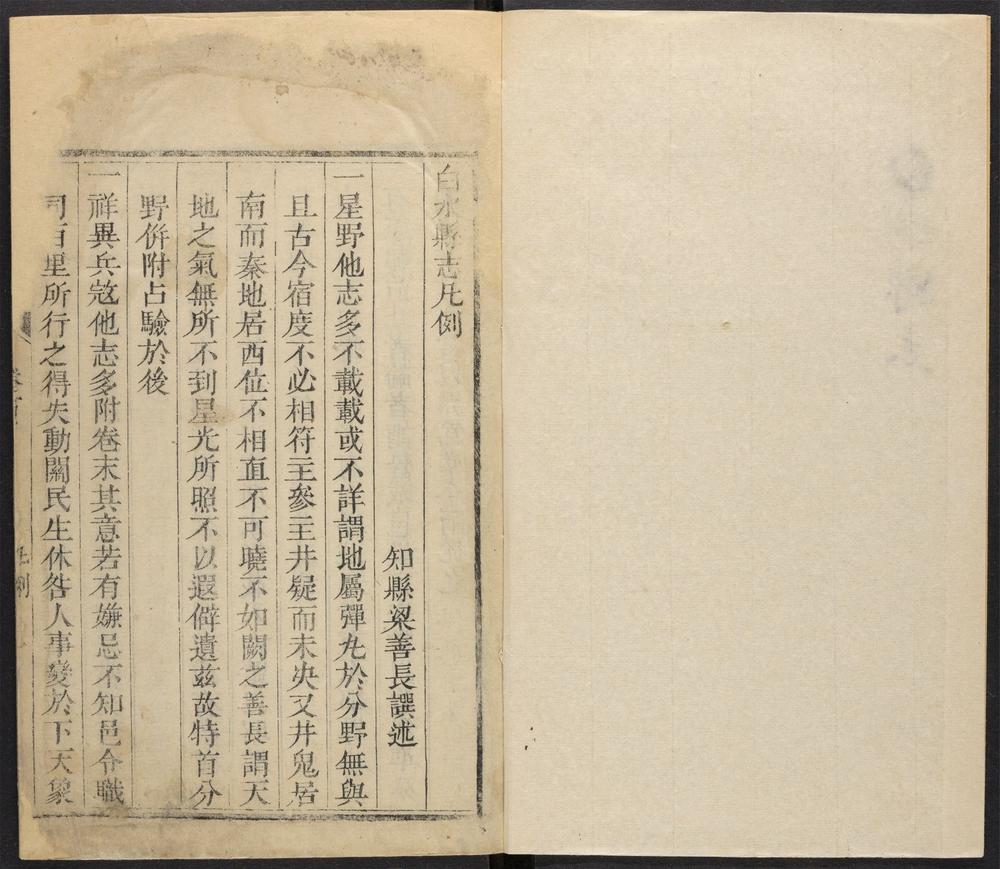 白水縣志凡例
知縣梁善長譔述
一星野他志多不載載或不詳謂地屬彈丸於分野無與
且古今宿度不必相符主參主井疑而未决又井鬼居
南而秦地居西位不相直不可曉不如闕之善長謂天
地之氣無所不到星光所照不以遐僻遺茲故特首分
野併附占驗於後
一祥異兵寇他志多附卷末其意若有嫌忌不知邑令職
司百里所行之得失動關民生休咎人事變於下天象
凡例